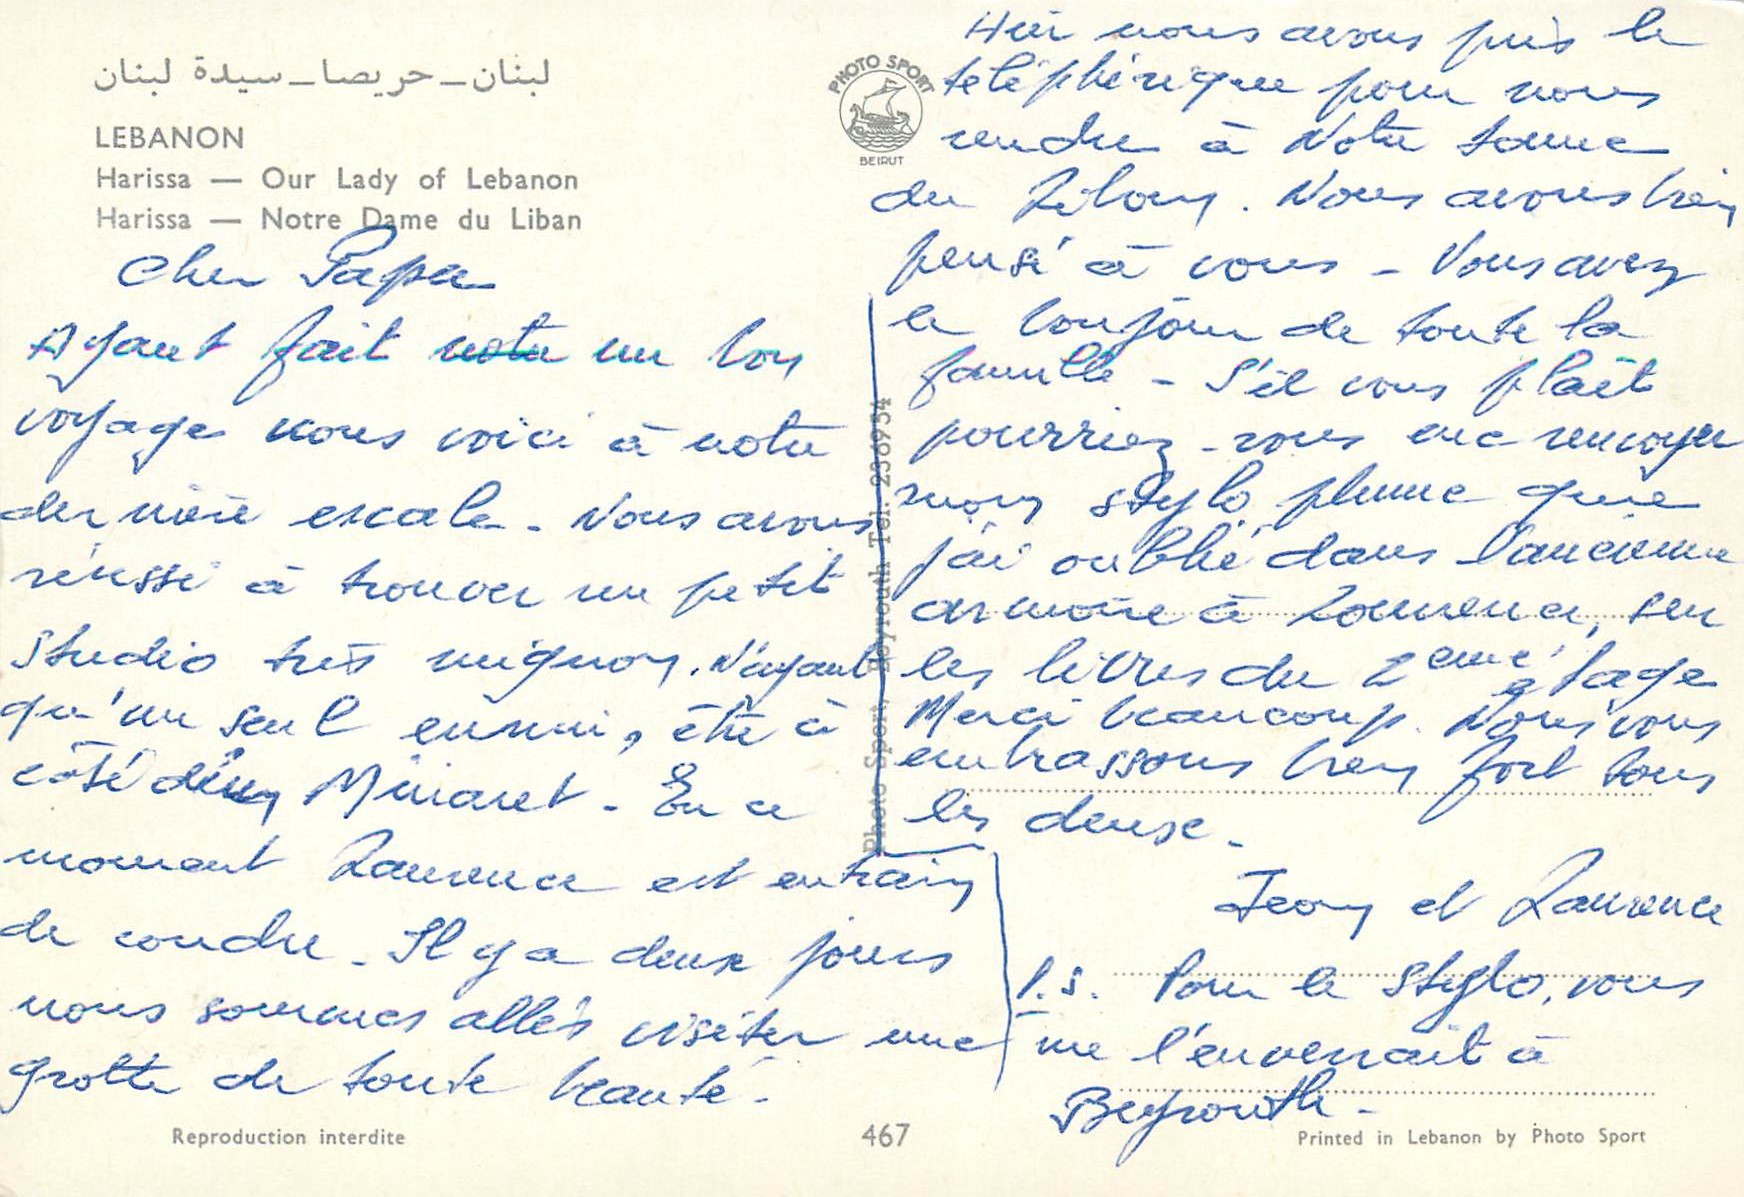 لبنان_حريصا_سيدة لبنان
LEBANON
Harissa — Our Lady of Lebanon
Harissa — Notre Dame du Liban
PHOTO SPORT
BEIRUT
Cher Papa
Ayant fait un bon
voyage nous voici à notre
dernière escale - Nous avons
réussi à trouver un petit
studio très mignon. N'ayant
qu'un seul ennui, être à
côté d'un Minaret - En ce
moment Laurence est entrain
de coudre - Il y a deux jours
nous sommes allés visiter une
grotte de toute beauté -
Hier nous avons pris le
téléphérique pour nous
rendre à Notre Dame
du Liban. Nous avons bien
pensé à vous - Vous avez
le bonjour de toute la
famille - S'il vous plaît
pourriez-vous me renvoyer
mon stylo plume que
j'ai oublié dans l'ancienne
armoire à Laurence, sur
les livres du 2eme étage
Merci beaucoup. Nous vous
embrassons bien fort tous
les deux -
Jean et Laurence
P.S. Pour le stylo, vous
me l'enverrait à
Beyrouth -
Photo Sport, Beyrouth Tel. 236934
Reproduction interdite
467
Printed in Lebanon by Photo Sport